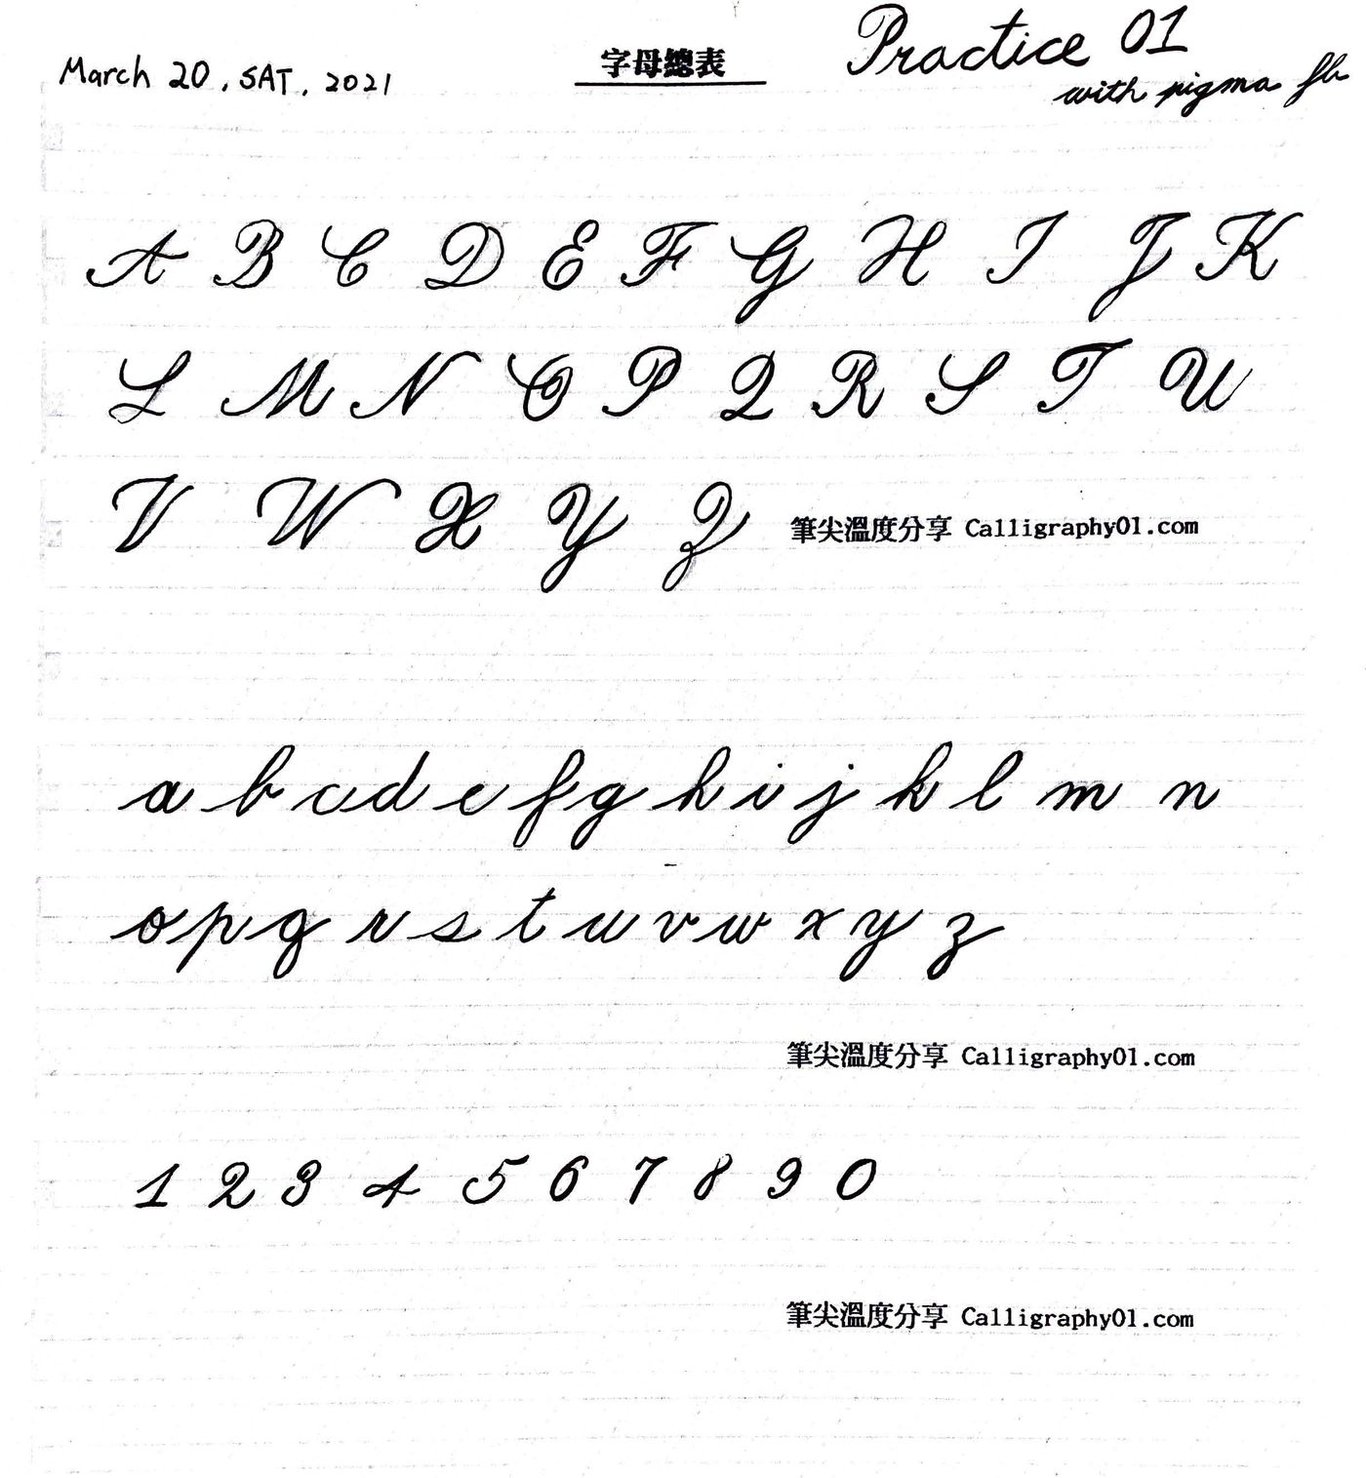 March 20, SAT, 2021
字母總表
Practice 01
with pigma fb
A B C D E F G H I J K
L M N O P Q R S T U
V W X Y Z
筆尖溫度分享 Calligraphy01.com
a b c d e f g h i j k l m n
o p q r s t u v w x y z
筆尖溫度分享 Calligraphy01.com
1 2 3 4 5 6 7 8 9 0
筆尖溫度分享 Calligraphy01.com